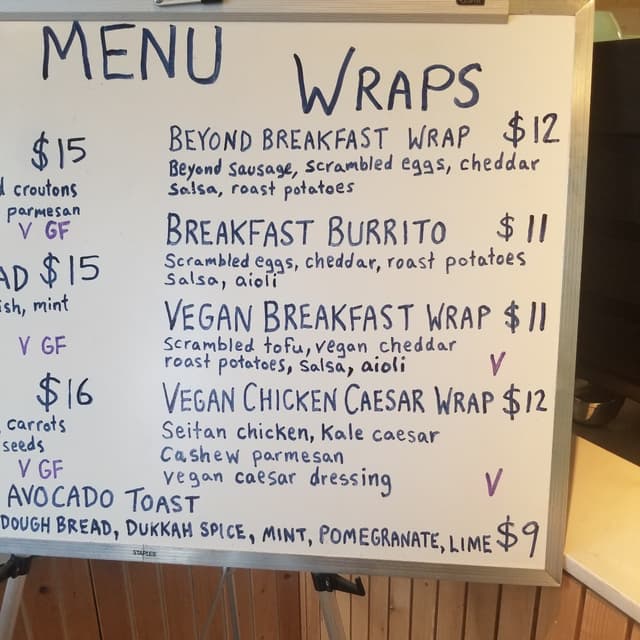 MENU
WRAPS
$15
croutons
parmesan
V GF
$15
mint
V GF
$16
carrots
seeds
V GF
BEYOND BREAKFAST WRAP $12
Beyond Sausage, scrambled eggs, cheddar
Salsa, roast potatoes
BREAKFAST BURRITO $11
Scrambled eggs, cheddar, roast potatoes
Salsa, aioli
VEGAN BREAKFAST WRAP $11
Scrambled tofu, vegan cheddar
roast potatoes, salsa, aioli V
VEGAN CHICKEN CAESAR WRAP $12
Seitan chicken, Kale caesar
Cashew parmesan
vegan caesar dressing V
AVOCADO TOAST
DOUGH BREAD, DUKKAH SPICE, MINT, POMEGRANATE, LIME $9
STAPLES